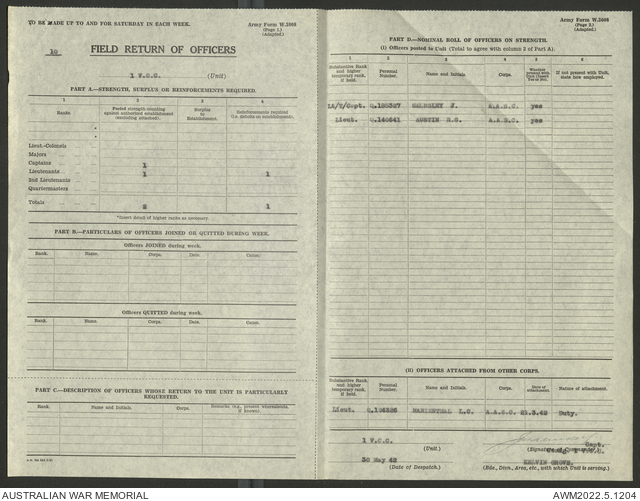 TO BE MADE UP TO AND FOR SATURDAY IN EACH WEEK.
Army Form W.3008
(Page 1.)
(Adapted.)
FIELD RETURN OF OFFICERS
1 V.C.C. (Unit)
PART A.—STRENGTH, SURPLUS OR REINFORCEMENTS REQUIRED.
1 2 3 4
Ranks. Posted strength counting against authorized establishment (excluding attached). Surplus to Establishment. Reinforcements required (i.e. deficits on establishment).
Lieut.-Colonels
Majors
Captains 1
Lieutenants 1 1
2nd Lieutenants
Quartermasters
Totals 2 1
*Insert detail of higher ranks as necessary.
PART B.—PARTICULARS OF OFFICERS JOINED OR QUITTED DURING WEEK.
Officers JOINED during week.
Rank. Name. Corps. Date. Cause.
Officers QUITTED during week.
Rank. Name. Corps. Date. Cause.
PART C.—DESCRIPTION OF OFFICERS WHOSE RETURN TO THE UNIT IS PARTICULARLY REQUESTED.
Rank. Name and Initials. Corps. Remarks (e.g., present whereabouts, if known).
Army Form W.3008
(Page 2.)
(Adapted.)
PART D.—NOMINAL ROLL OF OFFICERS ON STRENGTH.
(i) Officers posted to Unit (Total to agree with column 2 of Part A).
Substantive Rank and higher temporary rank, if held. Personal Number. Name and Initials. Corps. Whether present with Unit (insert Yes or No). If not present with Unit, state how employed.
Lt/T/Capt. J. A.A.S.C. yes
Lieut. Q.140641 AUSTIN A.A.S.C. yes
(ii) OFFICERS ATTACHED FROM OTHER CORPS.
Substantive Rank and higher temporary rank, if held. Personal Number. Name and Initials. Corps. Date of attachment. Nature of attachment.
Lieut. L.C. A.A.S.C. 21.3.42 Duty.
1 V.C.C. (Unit.)
Capt.
(Signature of Commander.)
30 May 42
(Date of Despatch.)
KELVIN GROVE.
(Bde., Dson., Area, etc., with which Unit is serving.)
AUSTRALIAN WAR MEMORIAL
AWM2022.5.1204